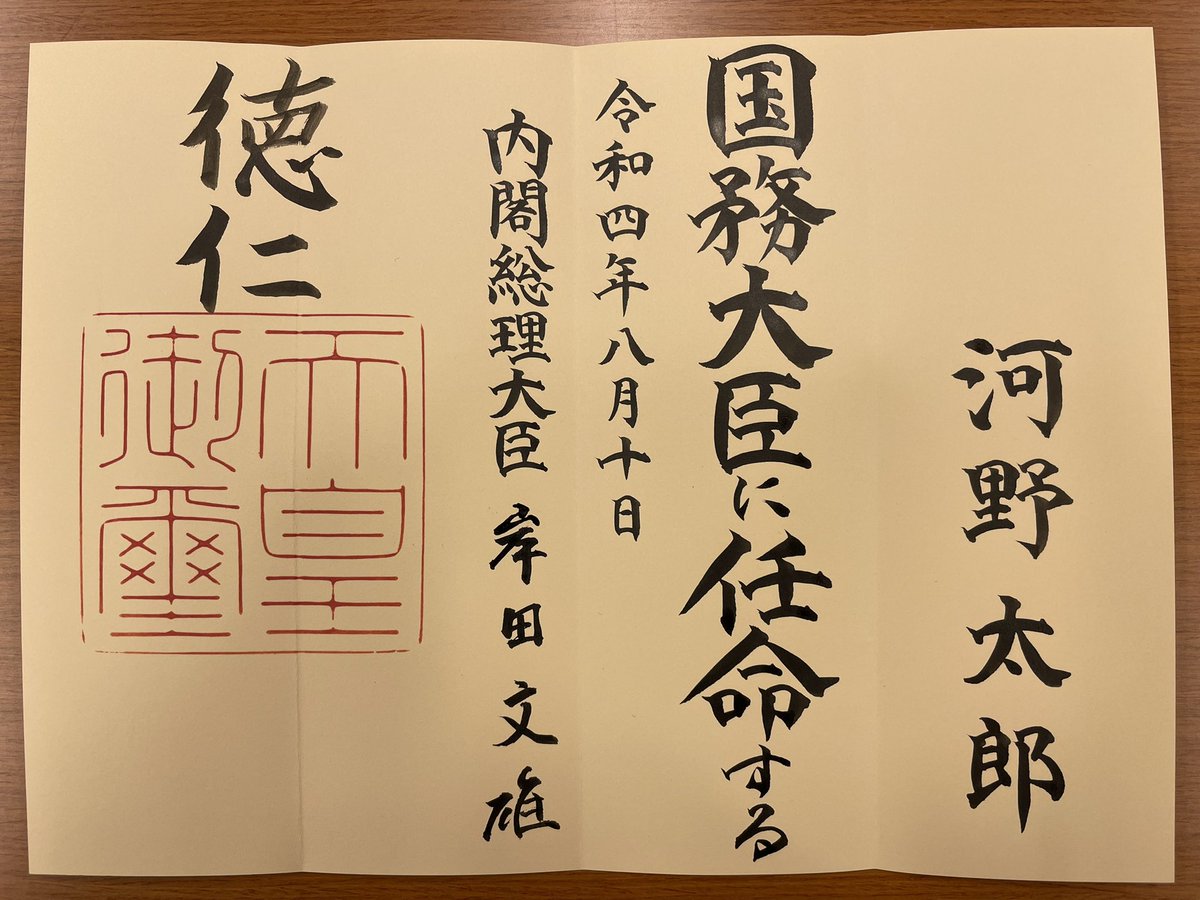 河野太郎
国務大臣に任命する
令和四年八月十日
内閣総理大臣 岸田文雄
徳仁
天皇
御璽